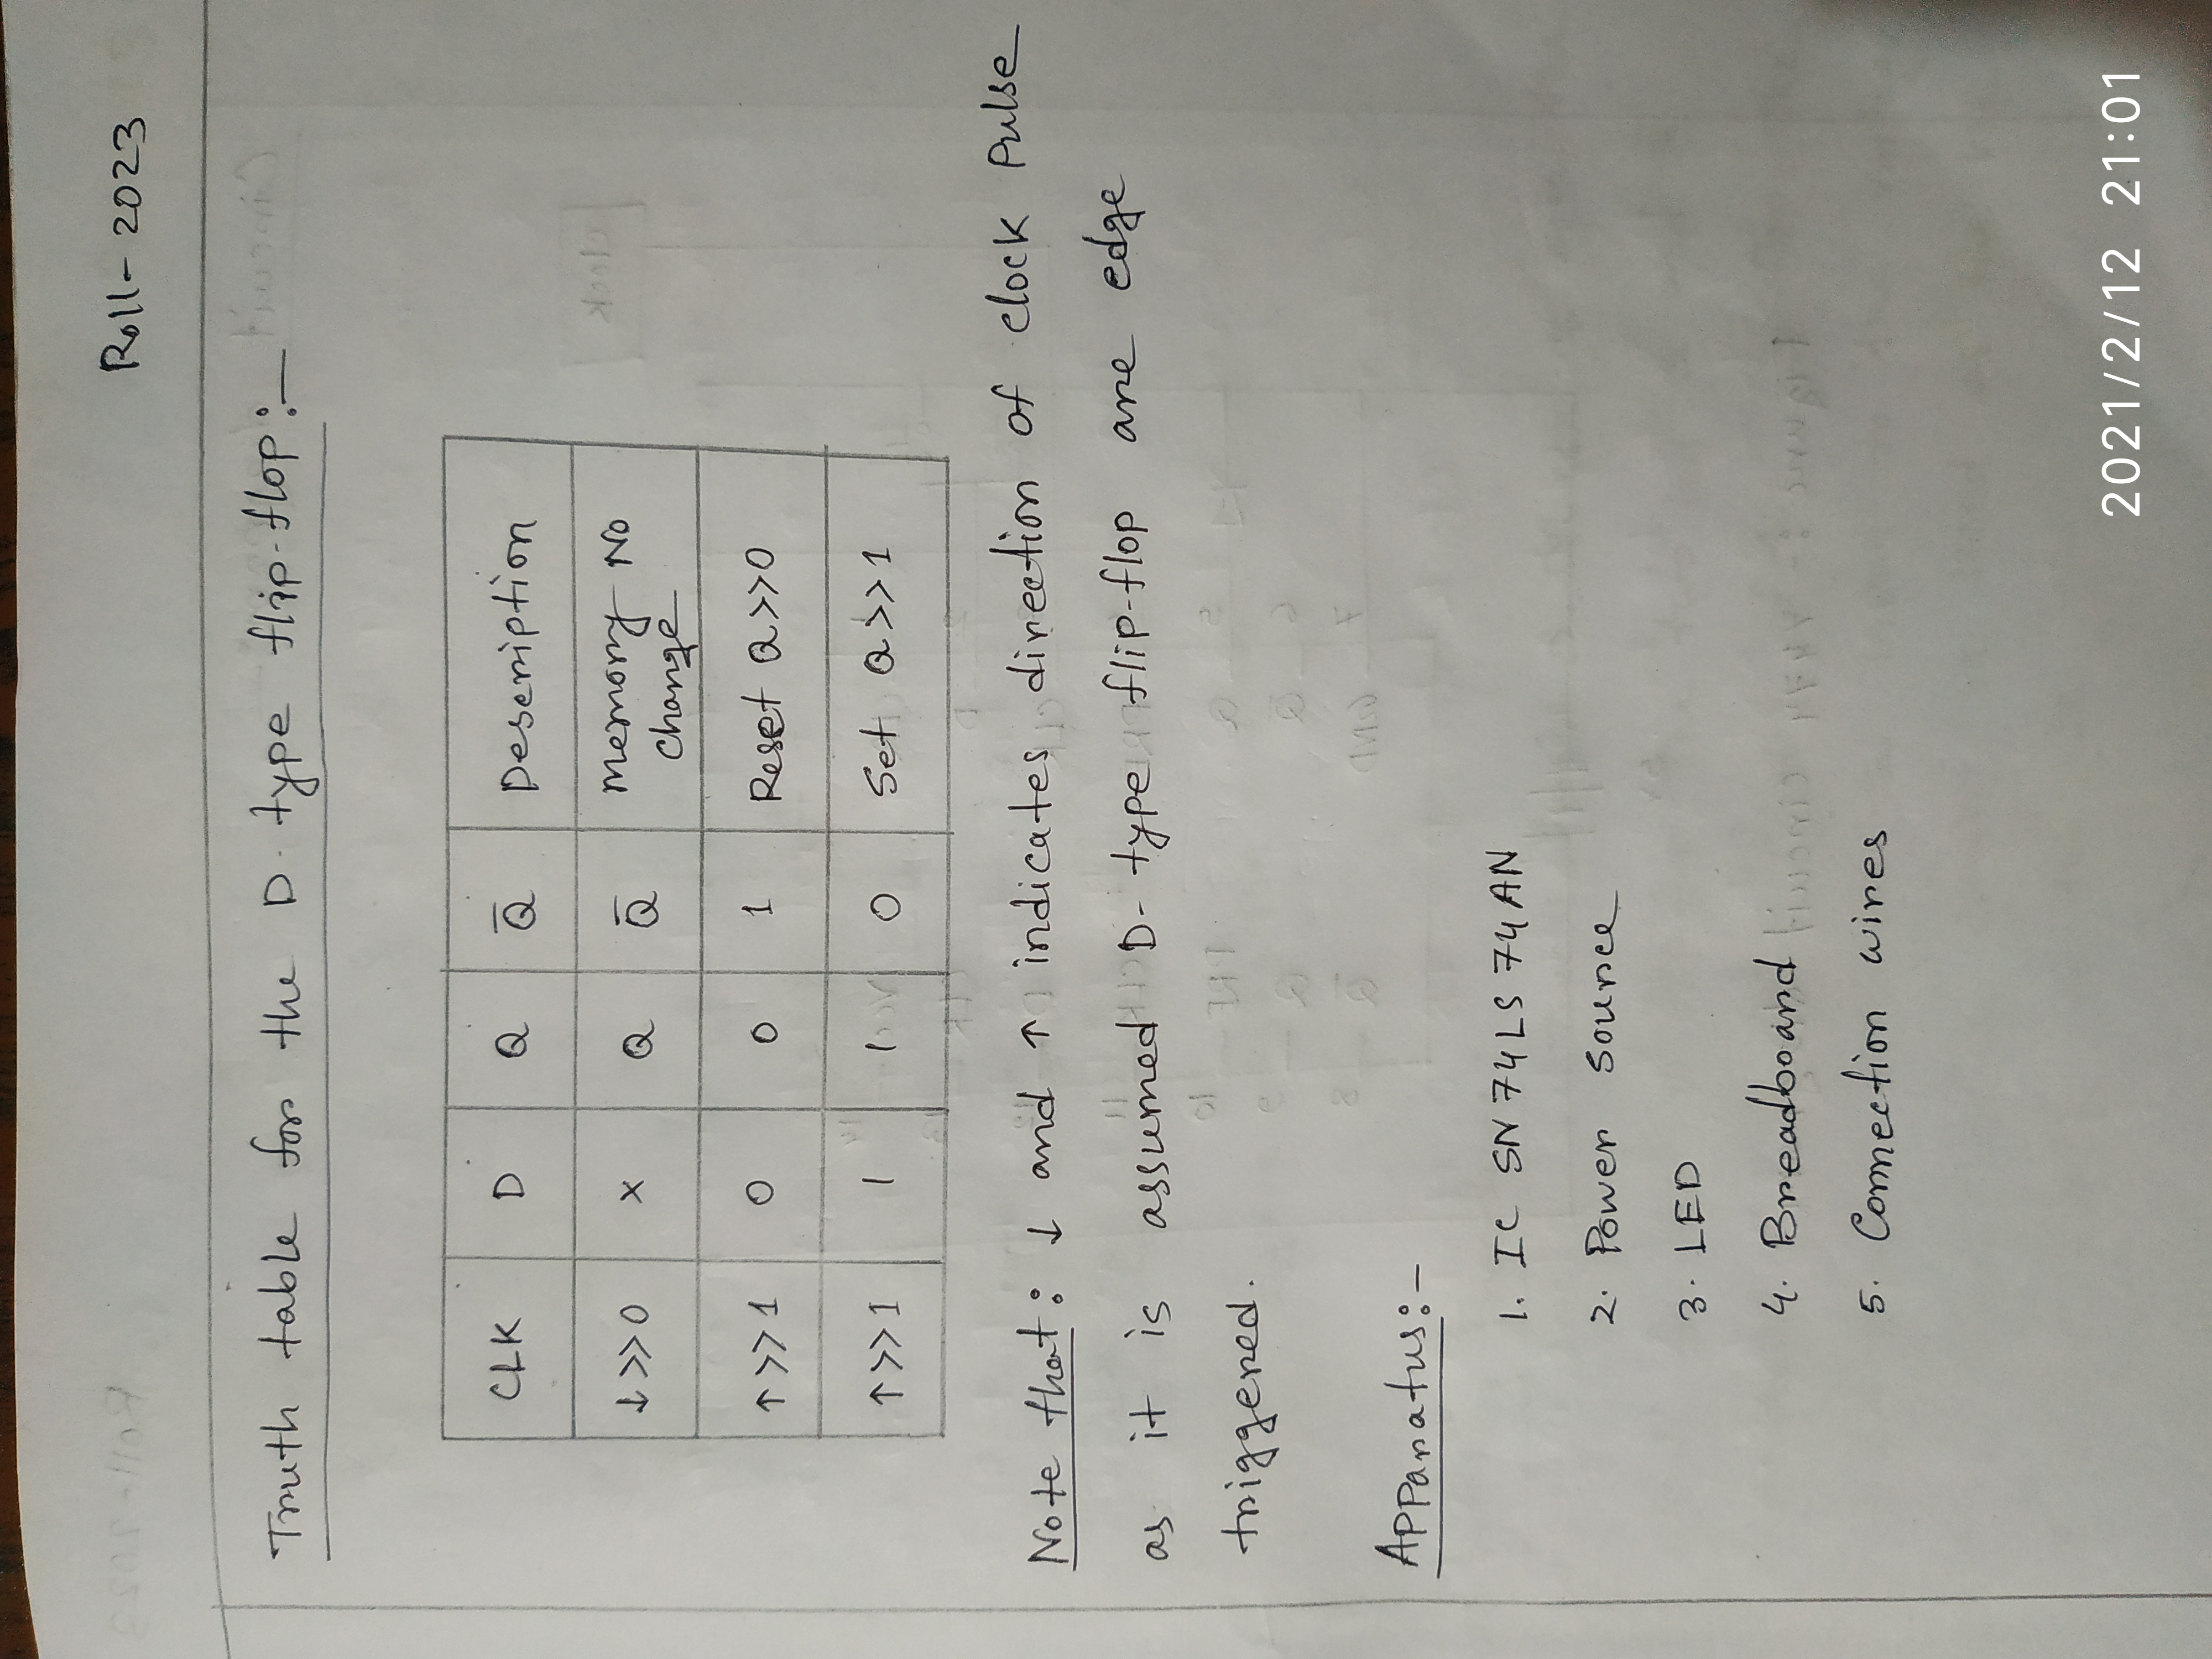 Roll- 2023
Truth table for the D-type flip-flop:-
CLK D Q Q̅ Description
↓>>0 x Q Q̅ Memory No
change
↑>>1 0 0 1 Reset Q>>0
↑>>1 1 1 0 Set Q>>1
Note that: ↓ and ↑ indicates direction of clock Pulse
as it is assumed D-type flip-flop are edge
triggered.
Apparatus:-
1. IC SN74LS74AN
2. Power source
3. LED
4. Breadboard
5. Connection wires
2021/2/12 21:01